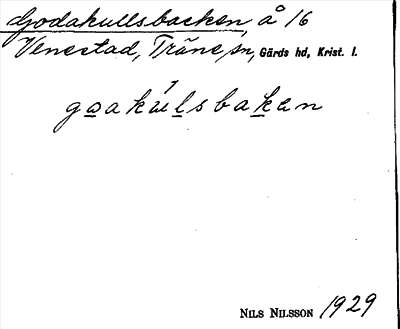 Godakullsbacken, å 16
Venestad, Träne sn, Gärds hd, Krist. l.
goakulsbakan
NILS NILSSON 1929